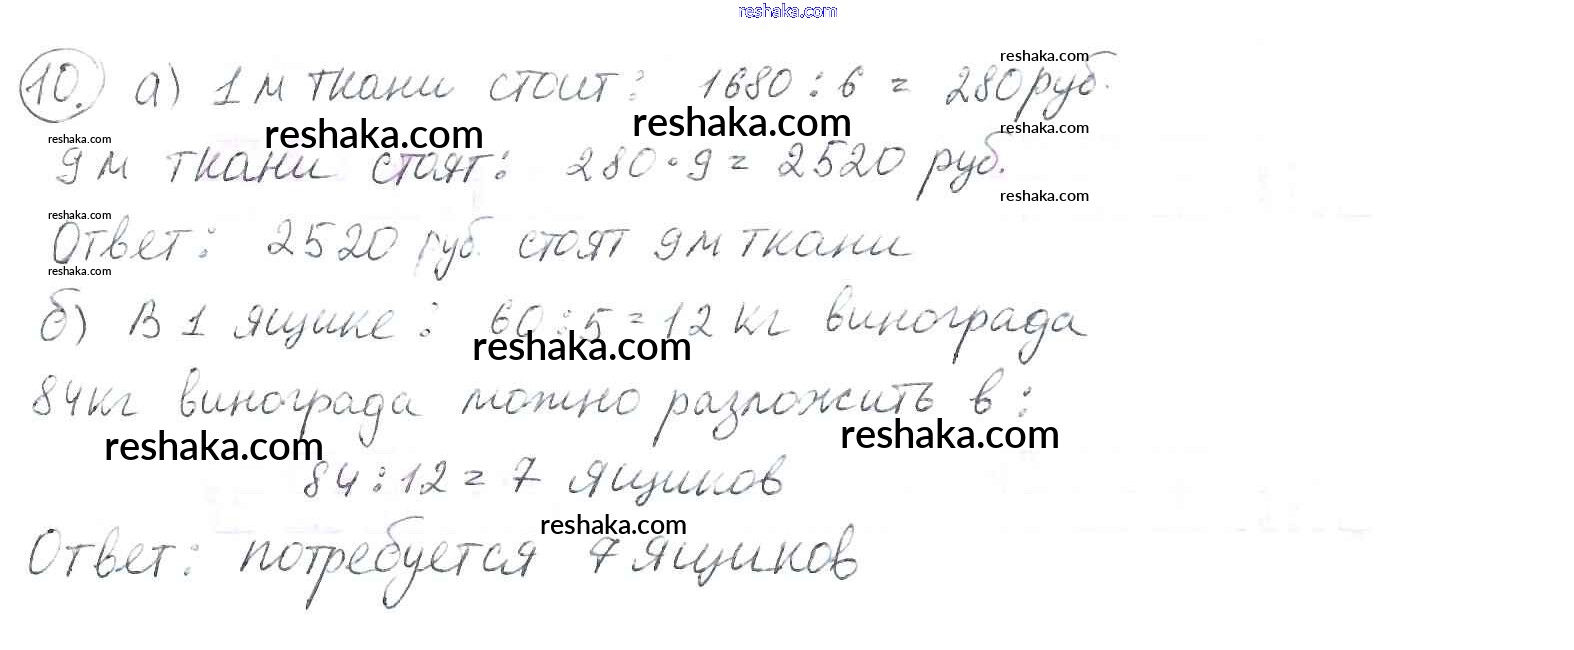 reshaka.com
reshaka.com
10. а) 1 м ткани стоит: 1680 : 6 = 280 руб.
reshaka.com reshaka.com reshaka.com
reshaka.com
9 м ткани стоят: 280 · 9 = 2520 руб.
reshaka.com
reshaka.com
Ответ: 2520 руб. стоят 9 м ткани
reshaka.com
б) В 1 ящике: 60 : 5 = 12 кг винограда
reshaka.com
84 кг винограда можно разложить в:
reshaka.com reshaka.com
84 : 12 = 7 ящиков
reshaka.com
Ответ: потребуется 7 ящиков